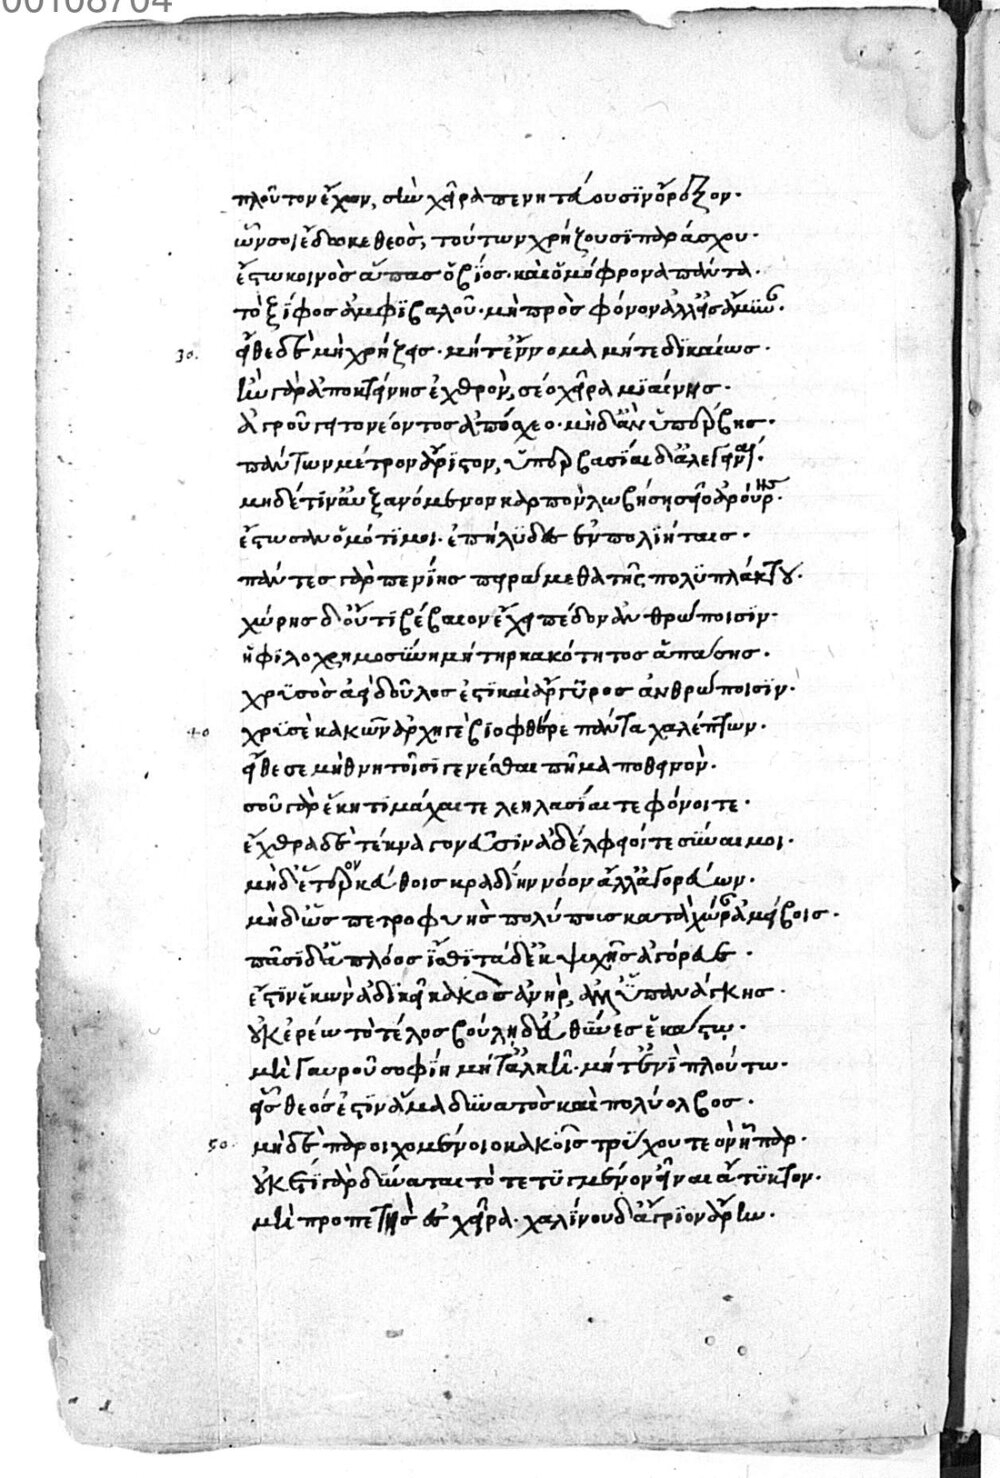 00108704
πλοῦτον ἔχων, σὴν χεῖρα πενητεύουσιν ὄρεξον·
ὧν σοι ἔδωκε θεὸς, τούτων χρήζουσι παράσχου·
ἔστω κοινὸς ἅπας ὁ βίος· καὶ ὁμόφρονα πάντα·
τὸ ξίφος ἀμφιβαλοῦ· μὴ πρὸς φόνον ἀλλ' ἐς ἄμυναν·
30. εἴθε δὲ μὴ χρήζεις· μήτ' ἔννομα μήτε δικαίως·
ἢν γὰρ ἀποκτείνης ἐχθρὸν, σέο χεῖρα μιαίνεις·
ἀγροῦ γειτονέοντος ἀπόσχεο· μὴ δ' ἂν ὑπερβῆς·
πάντων μέτρον ἄριστον, ὑπερβασίαι δ' ἀλεγειναί·
μηδέ τιν' αὐξανόμενον καρπὸν λωβήσης ἀρούρης·
ἔστωσαν ὁμότιμοι· ἐπήλυδες ἐν πολιήταις·
πάντες γὰρ πενίης πειρώμεθα τῆς πολυπλάκτου·
χώρης δ' οὔτι βέβαιον ἔχει πέδον ἀνθρώποισιν·
ἡ φιλοχρημοσύνη μήτηρ κακότητος ἁπάσης·
χρυσὸς ἀεὶ δοῦλος ἐστι καὶ ἄργυρος ἀνθρώποισιν·
40 χρυσὲ κακῶν ἀρχηγὲ βιοφθόρε πάντα χαλέπτων·
εἴθε σε μὴ θνητοῖσι γενέσθαι πῆμα ποθεινόν·
σοῦ γὰρ ἕκητι μάχαι τε λεηλασίαι τε φόνοι τε·
ἐχθρὰ δὲ τέκνα γονεῦσιν ἀδελφειοί τε σύναιμοι·
μὴ δ' ἕτερον κεύθοις κραδίη νόον ἄλλ' ἀγορεύων·
μὴ δ' ὡς πετροφυὴς πολύπους κατὰ χώραν ἀμείβοις·
πᾶσι δ' ἁπλόος ἴσθι τὰ δ' ἐκ ψυχῆς ἀγόρευε·
ἔστιν ἑκὼν ἀδικεῖ κακὸς ἀνὴρ, ἀλλ' ὑπ' ἀνάγκης·
οὐκ ἐρέω τὸ τέλος βούλη δ' εὐθύνεσ' ἑκάστω·
μὴ γαυροῦ σοφίη μήτ' ἀλκῆ· μήτ' ἐνὶ πλούτω·
εἷς θεός ἐστιν ἅμα δυνατὸς καὶ πολύολβος·
50· μὴ δὲ παροιχομένοιο κακοῖς τρύχου τεὸν ἧπαρ·
οὐκ ἔτι γὰρ δύναται τὸ τετυγμένον εἶναι ἄτυκτον·
μὴ προπετὴς ἐς χεῖρα· χαλίνου δ' ἄγριον ἄρην·